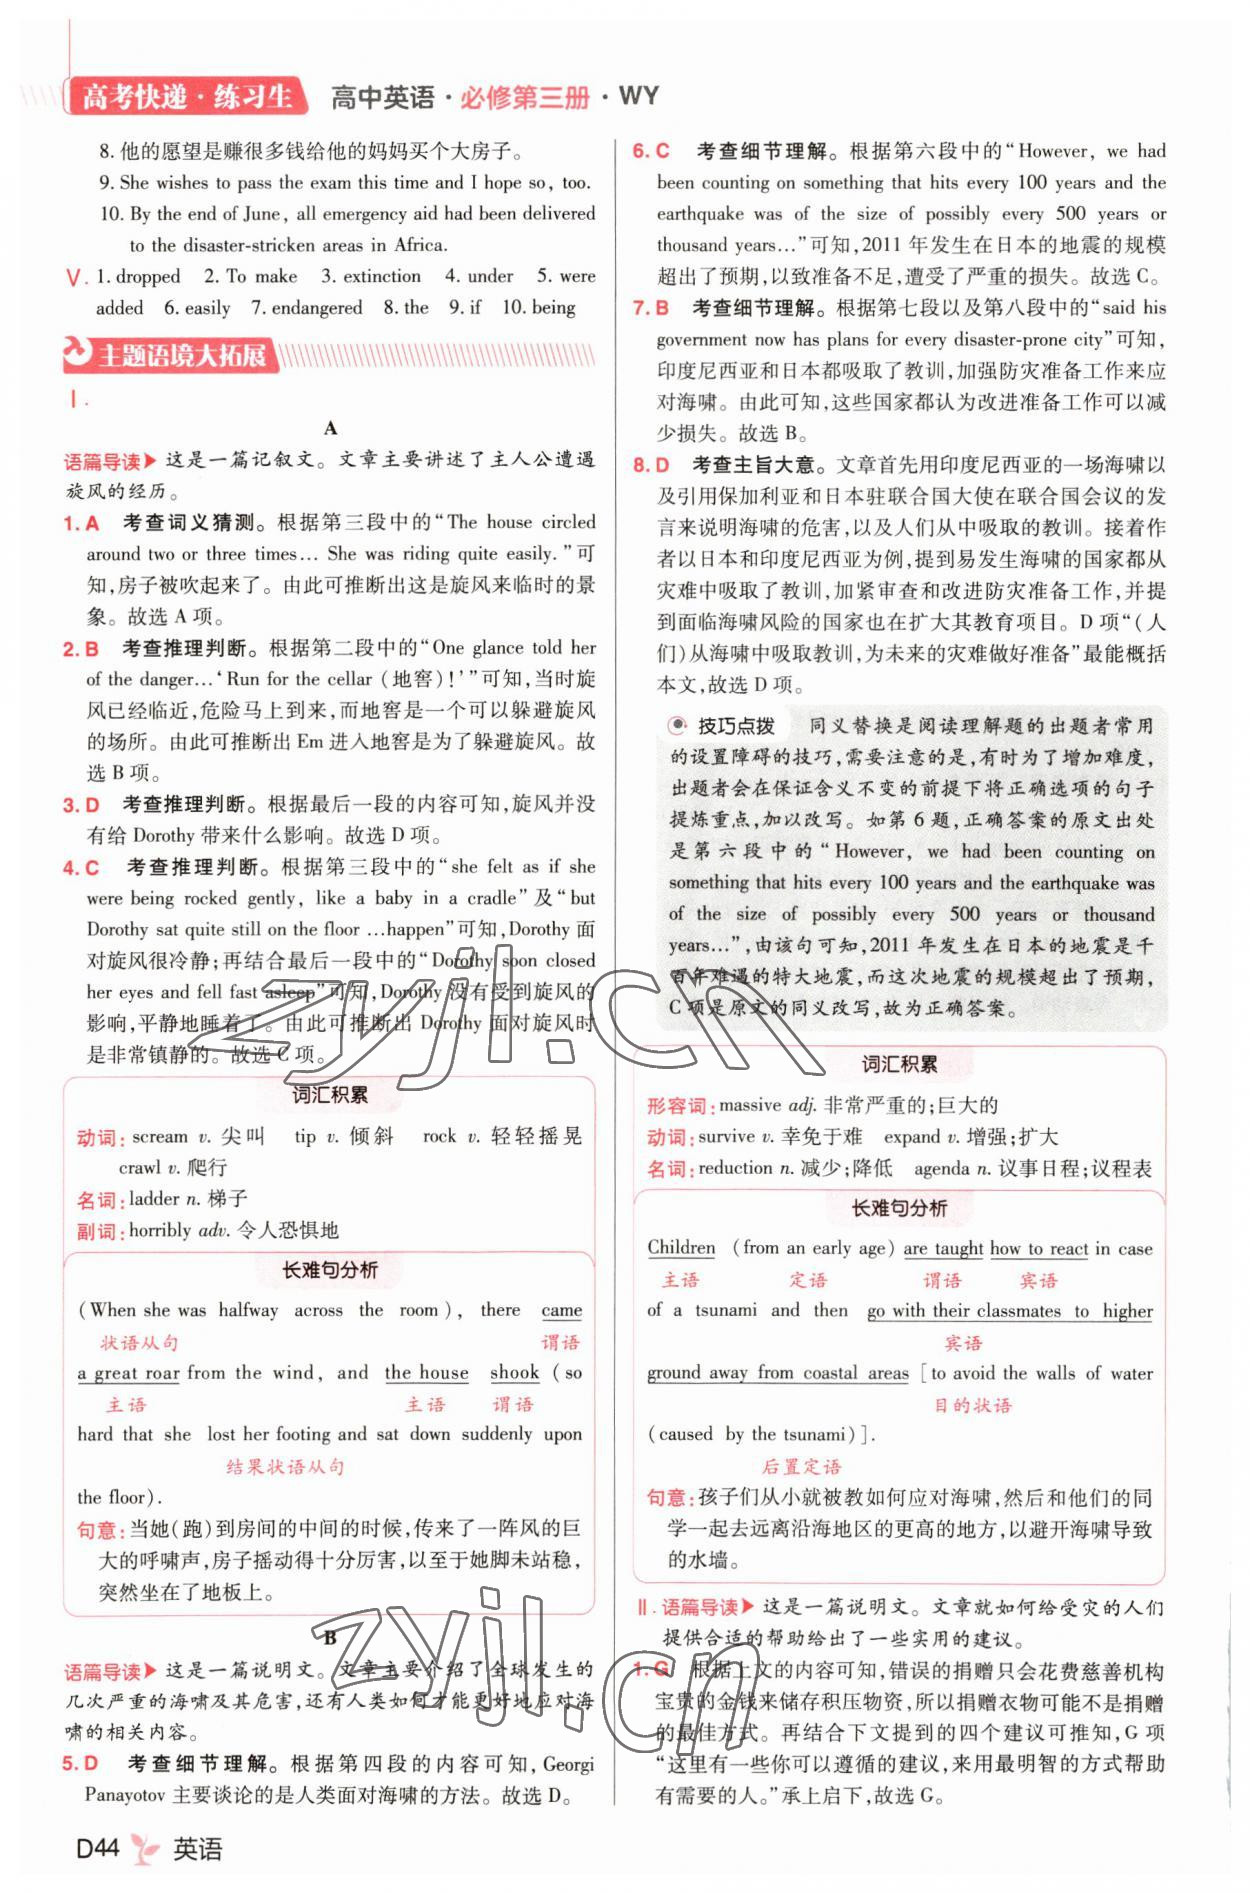 高考快递·练习生 高中英语·必修第三册·WY
8. 他的愿望是赚很多钱给他的妈妈买个大房子。
9. She wishes to pass the exam this time and I hope so, too.
10. By the end of June, all emergency aid had been delivered
to the disaster-stricken areas in Africa.
V. 1. dropped 2. To make 3. extinction 4. under 5. were
added 6. easily 7. endangered 8. the 9. if 10. being
主题语境大拓展
Ⅰ.
A
语篇导读▶ 这是一篇记叙文。文章主要讲述了主人公遭遇
旋风的经历。
1. A 考查词义猜测。根据第三段中的“The house circled
around two or three times… She was riding quite easily.”可
知,房子被吹起来了。由此可推断出这是旋风来临时的景
象。故选 A 项。
2. B 考查推理判断。根据第二段中的“One glance told her
of the danger…‘Run for the cellar (地窖)!’”可知,当时旋
风已经临近,危险马上到来,而地窖是一个可以躲避旋风
的场所。由此可推断出 Em 进入地窖是为了躲避旋风。故
选 B 项。
3. D 考查推理判断。根据最后一段的内容可知,旋风并没
有给 Dorothy 带来什么影响。故选 D 项。
4. C 考查推理判断。根据第三段中的“she felt as if she
were being rocked gently, like a baby in a cradle”及“but
Dorothy sat quite still on the floor …happen”可知,Dorothy 面
对旋风很冷静;再结合最后一段中的“Dorothy soon closed
her eyes and fell fast asleep”可知,Dorothy 没有受到旋风的
影响,平静地睡着了。由此可推断出 Dorothy 面对旋风时
是非常镇静的。故选 C 项。
词汇积累
动词: scream v. 尖叫 tip v. 倾斜 rock v. 轻轻摇晃
crawl v. 爬行
名词: ladder n. 梯子
副词: horribly adv. 令人恐惧地
长难句分析
(When she was halfway across the room), there came
状语从句 谓语
a great roar from the wind, and the house shook (so
主语 主语 谓语
hard that she lost her footing and sat down suddenly upon
结果状语从句
the floor).
句意:当她(跑)到房间的中间的时候,传来了一阵风的巨
大的呼啸声,房子摇动得十分厉害,以至于她脚未站稳,
突然坐在了地板上。
B
语篇导读▶ 这是一篇说明文。文章主要介绍了全球发生的
几次严重的海啸及其危害,还有人类如何才能更好地应对海
啸的相关内容。
5. D 考查细节理解。根据第四段的内容可知,Georgi
Panayotov 主要谈论的是人类面对海啸的方法。故选 D。
D44 英语
6. C 考查细节理解。根据第六段中的“However, we had
been counting on something that hits every 100 years and the
earthquake was of the size of possibly every 500 years or
thousand years…”可知,2011 年发生在日本的地震的规模
超出了预期,以致准备不足,遭受了严重的损失。故选 C。
7. B 考查细节理解。根据第七段以及第八段中的“said his
government now has plans for every disaster-prone city”可知,
印度尼西亚和日本都吸取了教训,加强防灾准备工作来应
对海啸。由此可知,这些国家都认为改进准备工作可以减
少损失。故选 B。
8. D 考查主旨大意。文章首先用印度尼西亚的一场海啸以
及引用保加利亚和日本驻联合国大使在联合国会议的发
言来说明海啸的危害,以及人们从中吸取的教训。接着作
者以日本和印度尼西亚为例,提到易发生海啸的国家都从
灾难中吸取了教训,加紧审查和改进防灾准备工作,并提
到面临海啸风险的国家也在扩大其教育项目。D 项“(人
们)从海啸中吸取教训,为未来的灾难做好准备”最能概括
本文,故选 D 项。
技巧点拨 同义替换是阅读理解题的出题者常用
的设置障碍的技巧,需要注意的是,有时为了增加难度,
出题者会在保证含义不变的前提下将正确选项的句子
提炼重点,加以改写。如第 6 题,正确答案的原文出处
是第六段中的“However, we had been counting on
something that hits every 100 years and the earthquake was
of the size of possibly every 500 years or thousand
years…”,由该句可知,2011 年发生在日本的地震是千
百年难遇的特大地震,而这次地震的规模超出了预期,
C 项是原文的同义改写,故为正确答案。
词汇积累
形容词: massive adj. 非常严重的;巨大的
动词: survive v. 幸免于难 expand v. 增强;扩大
名词: reduction n. 减少;降低 agenda n. 议事日程;议程表
长难句分析
Children (from an early age) are taught how to react in case
主语 定语 谓语 宾语
of a tsunami and then go with their classmates to higher
宾语
ground away from coastal areas [to avoid the walls of water
目的状语
(caused by the tsunami)].
后置定语
句意:孩子们从小就被教如何应对海啸,然后和他们的同
学一起去远离沿海地区的更高的地方,以避开海啸导致
的水墙。
Ⅱ. 语篇导读▶ 这是一篇说明文。文章就如何给受灾的人们
提供合适的帮助给出了一些实用的建议。
1. G 根据上文的内容可知,错误的捐赠只会花费慈善机构
宝贵的金钱来储存积压物资,所以捐赠衣物可能不是捐赠
的最佳方式。再结合下文提到的四个建议可推知,G 项
“这里有一些你可以遵循的建议,来用最明智的方式帮助
有需要的人。”承上启下,故选 G。
zyjl.cn
zyjl.cn